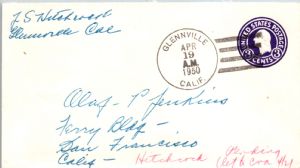 J S Hitchcock
Glennville Cal
GLENNVILLE
APR
19
A.M.
1950
CALIF.
UNITED STATES POSTAGE
3 CENTS 3
Olaf P Jenkins
Ferry Bldg -
San Francisco
Calif -
Hitchcock